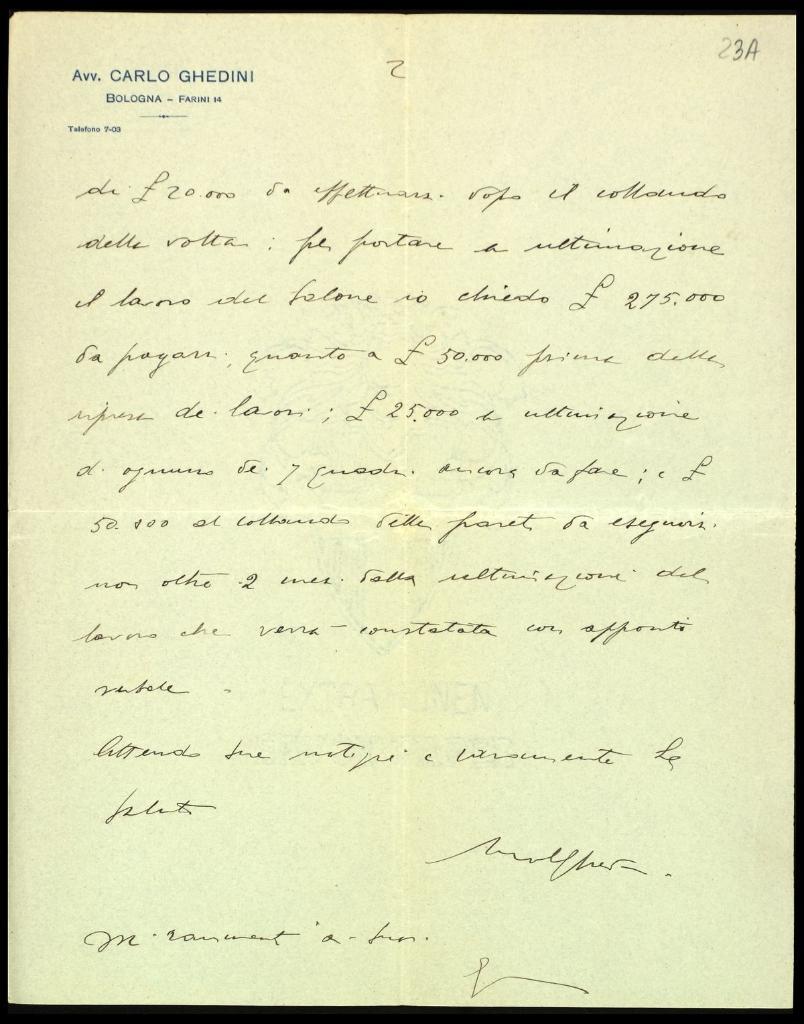 23A
2
Avv. CARLO GHEDINI
BOLOGNA – FARINI 14
Telefono 7-03
di £ 20.000 da effettuarsi dopo il collaudo
della volta; per portare a ultimazione
il lavoro del Salone io chiedo £ 275.000
da pagarsi, quanto a £ 50.000 prima della
ripresa dei lavori; £ 25.000 a ultimazione
di ognuno dei 7 quadri ancora da fare; e £
50.000 al collaudo delle pareti da eseguirsi
non oltre 2 mesi dalla ultimazione del
lavoro che verrà constatata con apposito
verbale.
Attendo sue notizie e caramente La
saluto
Mi rammenti a suoi.